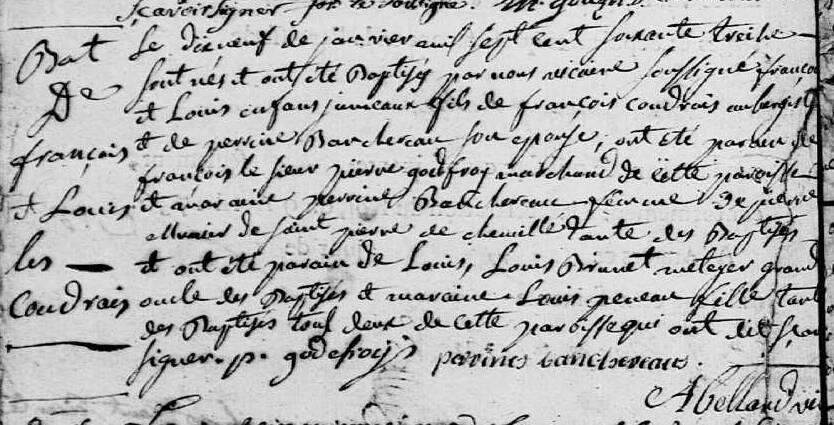 sçavoir signer
Bat De françois et Louis les Coudrais
Le dixneuf de janvier mil sept cent soixante treise
sont nés et ont été Baptisés par nous vicaire soussigné françois
et Louis enfans jumeaux fils de françois Coudrais aubergiste
et de perrine Banchereau son epouse, ont été parain de
françois le sieur pierre godfroy marchand de cette paroisse
et maraine perrine Banchereau femme de pierre
de saint pierre de chemillé tante des Baptisés
et ont été parain de Louis, Louis Brunet metayer grand
oncle des Baptisés et maraine Louis peneau fille tante
des Baptisés tous deux de cette paroisse qui ont dit sçavoir
signer. p. godefroij perrines banchereaus.
Abellard vic